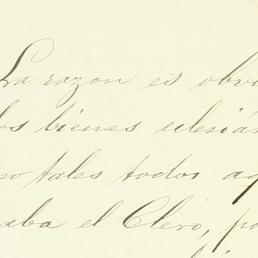 La razon es obv
los bienes eclesiás
mo tales todos aq
aba el Clero, po